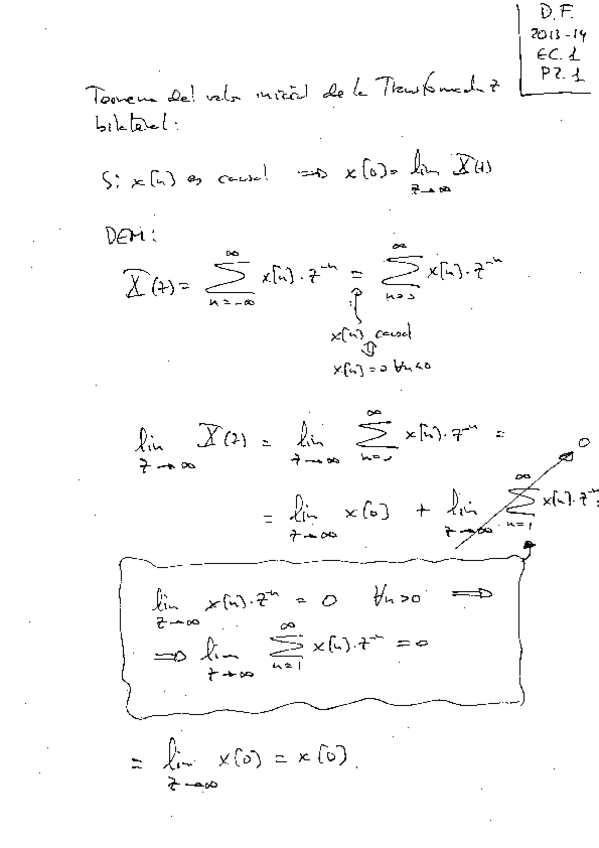 D.F.
2013-14
EC. 1
PZ. 1
Teorema del valor inicial de la Transformada Z
bilateral:
Si x[n] es causal ⟹ x[0] = lim_{z→∞} X(z)
DEM:
X(z) = ∑_{n=-∞}^{∞} x[n]·z^{-n} = ∑_{n=0}^{∞} x[n]·z^{-n}
x[n] causal
⇕
x[n] = 0 ∀n<0
lim_{z→∞} X(z) = lim_{z→∞} ∑_{n=0}^{∞} x[n]·z^{-n} =
= lim_{z→∞} x[0] + lim_{z→∞} ∑_{n=1}^{∞} x[n]·z^{-n} = 0
lim_{z→∞} x[n]·z^{-n} = 0 ∀n>0 ⟹
⟹ lim_{z→∞} ∑_{n=1}^{∞} x[n]·z^{-n} = 0
= lim_{z→∞} x[0] = x[0].